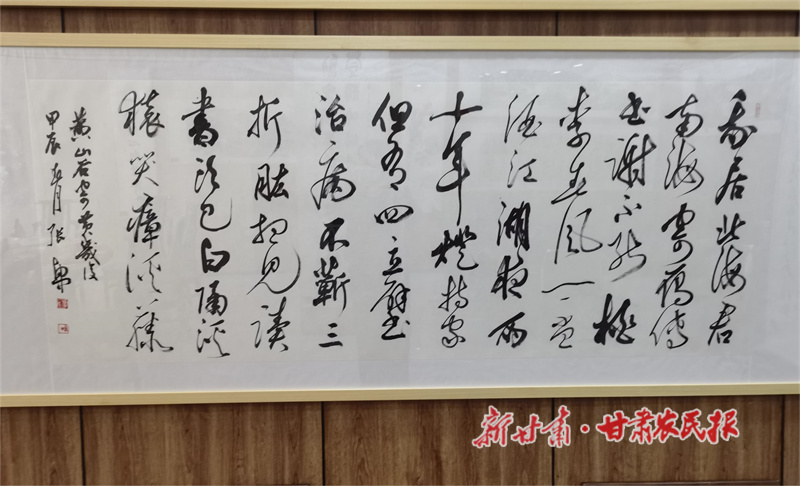 我居北海君
南海寄雁傳
書謝不能桃
李春風一杯
酒江湖夜雨
十年燈持家
但有四立壁
治病不蘄三
折肱想見讀
書頭已白隔溪
猿哭瘴溪藤
黄山谷寄黄幾復
甲辰 月 張
新甘肃·甘肃农民报